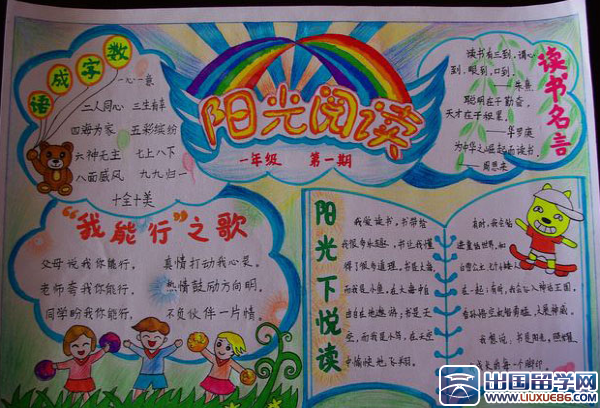 数字成语
一心一意
二人同心 三生有幸
四海为家 五彩缤纷
六神无主 七上八下
八面威风 九九归一
十全十美
阳光阅读
一年级 第一期
读书名言
读书有三到，谓心
到，眼到，口到。
——朱熹
聪明在于勤奋，
天才在于积累。
——华罗庚
为中华之崛起而读书。
——周恩来
“我能行”之歌
父母说我你能行， 真情打动我心灵。
老师夸我你能行， 热情鼓励方向明。
同学盼我你能行， 不负伙伴一片情。
阳光下悦读
我爱读书，书带给
我很多乐趣，书让我懂
得了很多道理。书是大海，
而我是小鱼，在大海中自
由自在地遨游；书是天
空，而我是小鸟，在天空
中愉快地飞翔。
有时，我会钻
进童话世界，和
在一起；有时，我会进入神话王国，
看孙悟空
我想说，书是阳光，照耀
出国留学网
WWW.LIUXUE86.COM